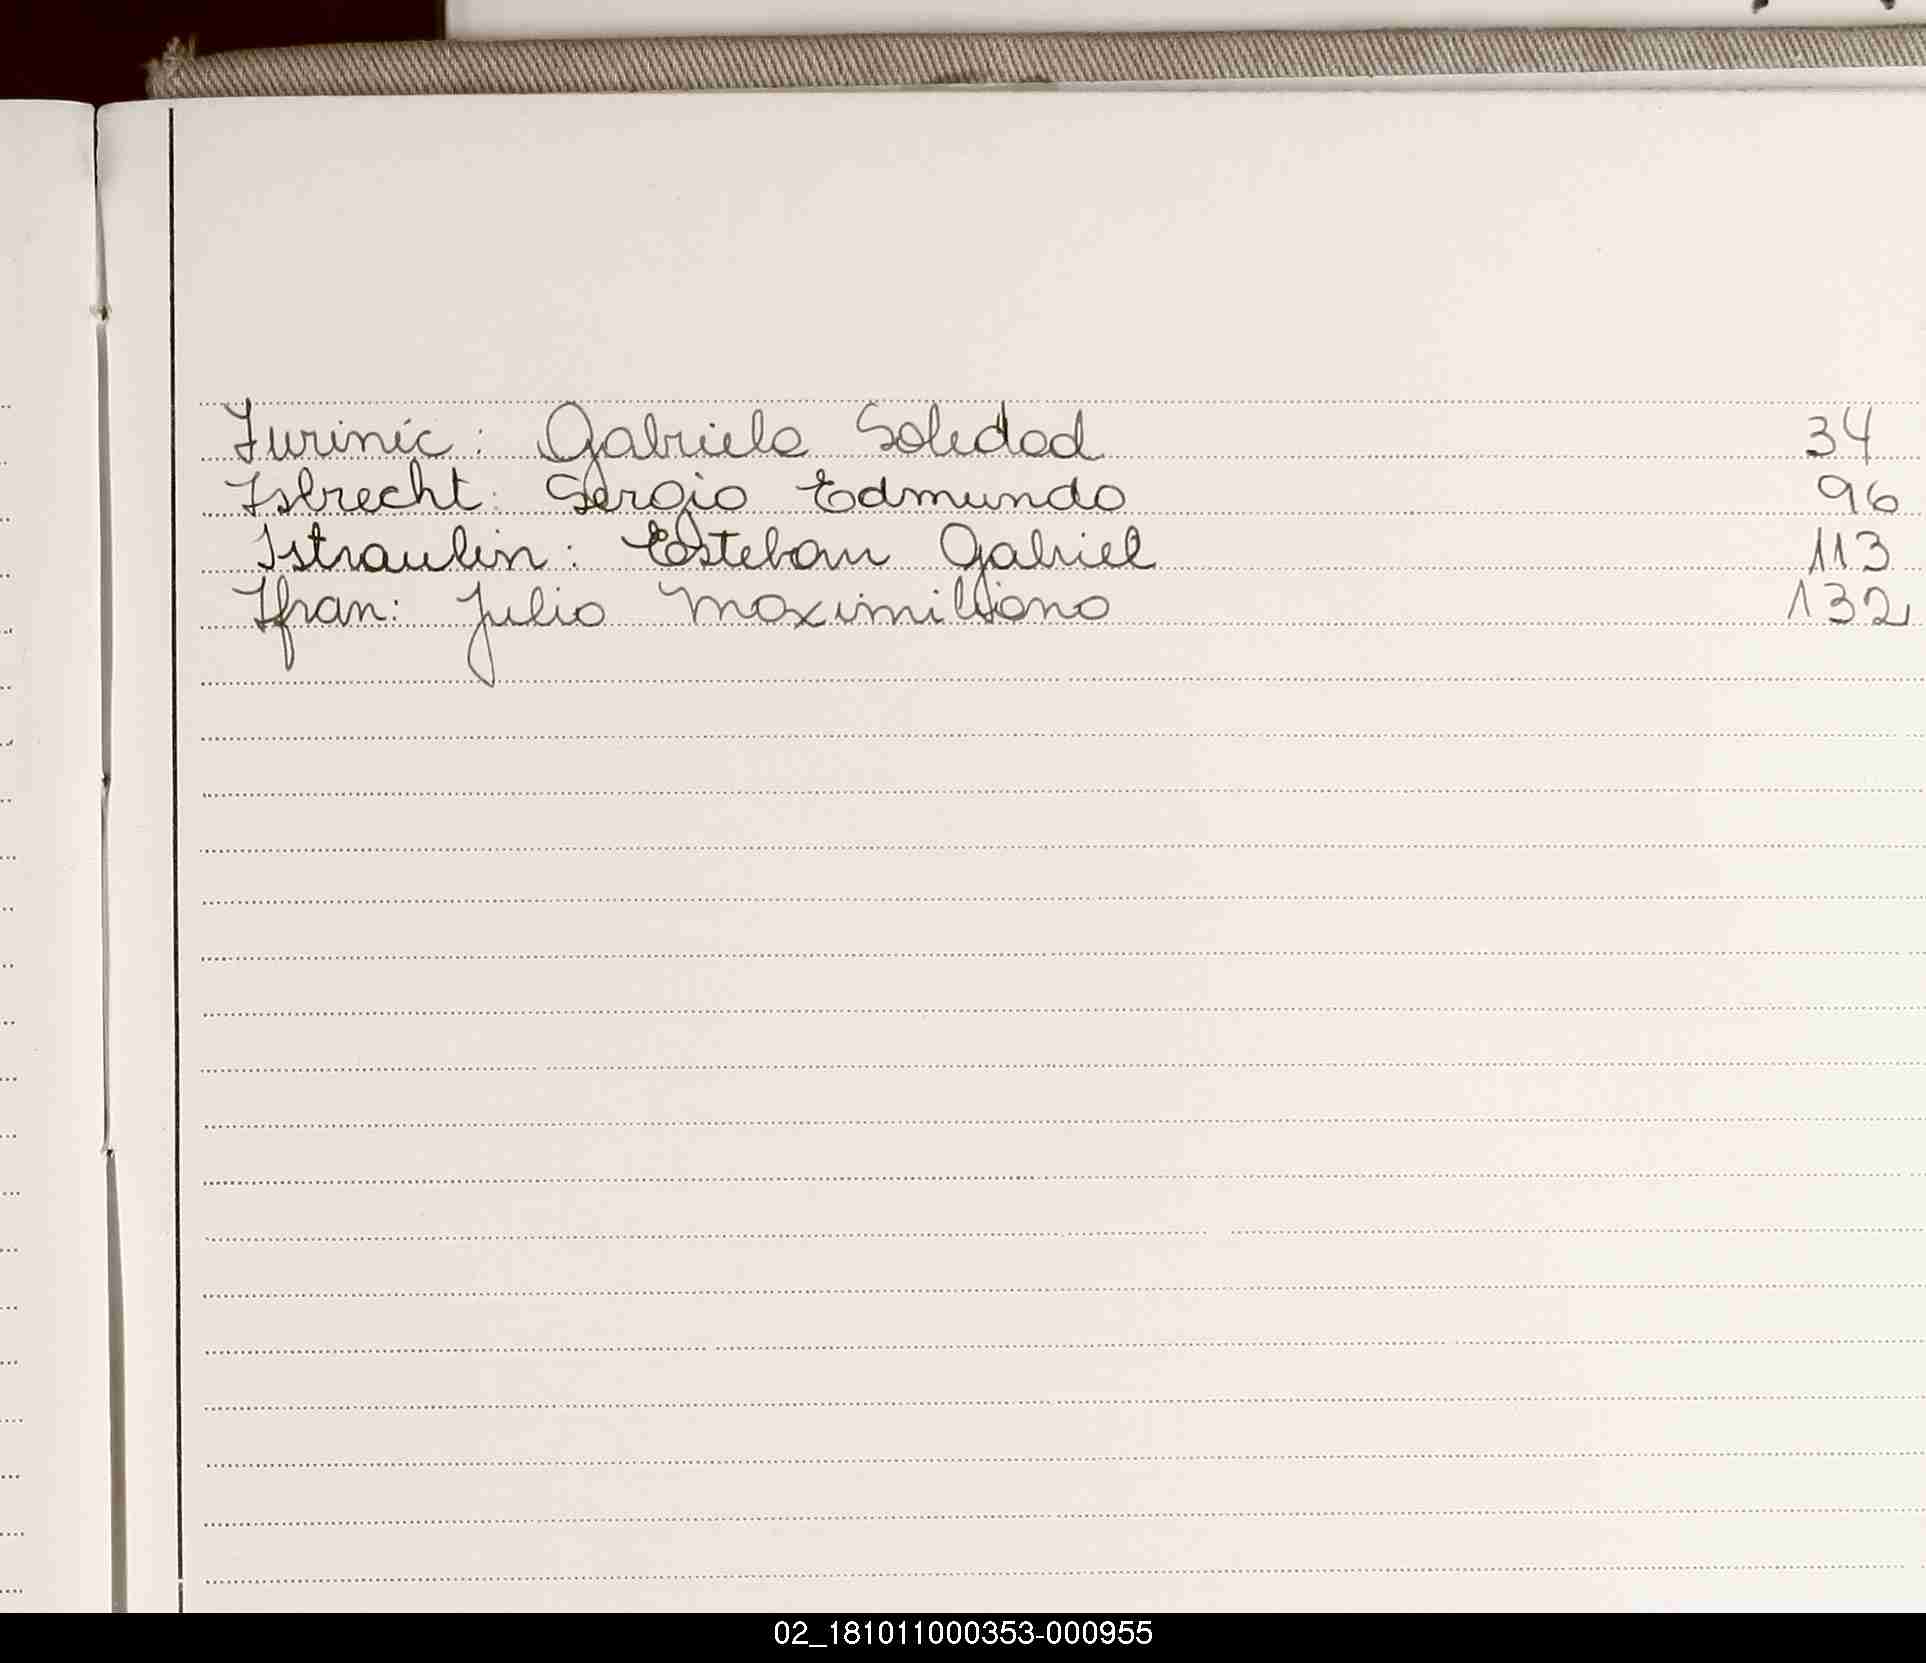 Iurinic: Gabriela Soledad 34
Isbrecht: Sergio Edmundo 96
Istraulin: Esteban Gabriel 113
Ifran: Julio Maximiliano 132
02_181011000353-000955